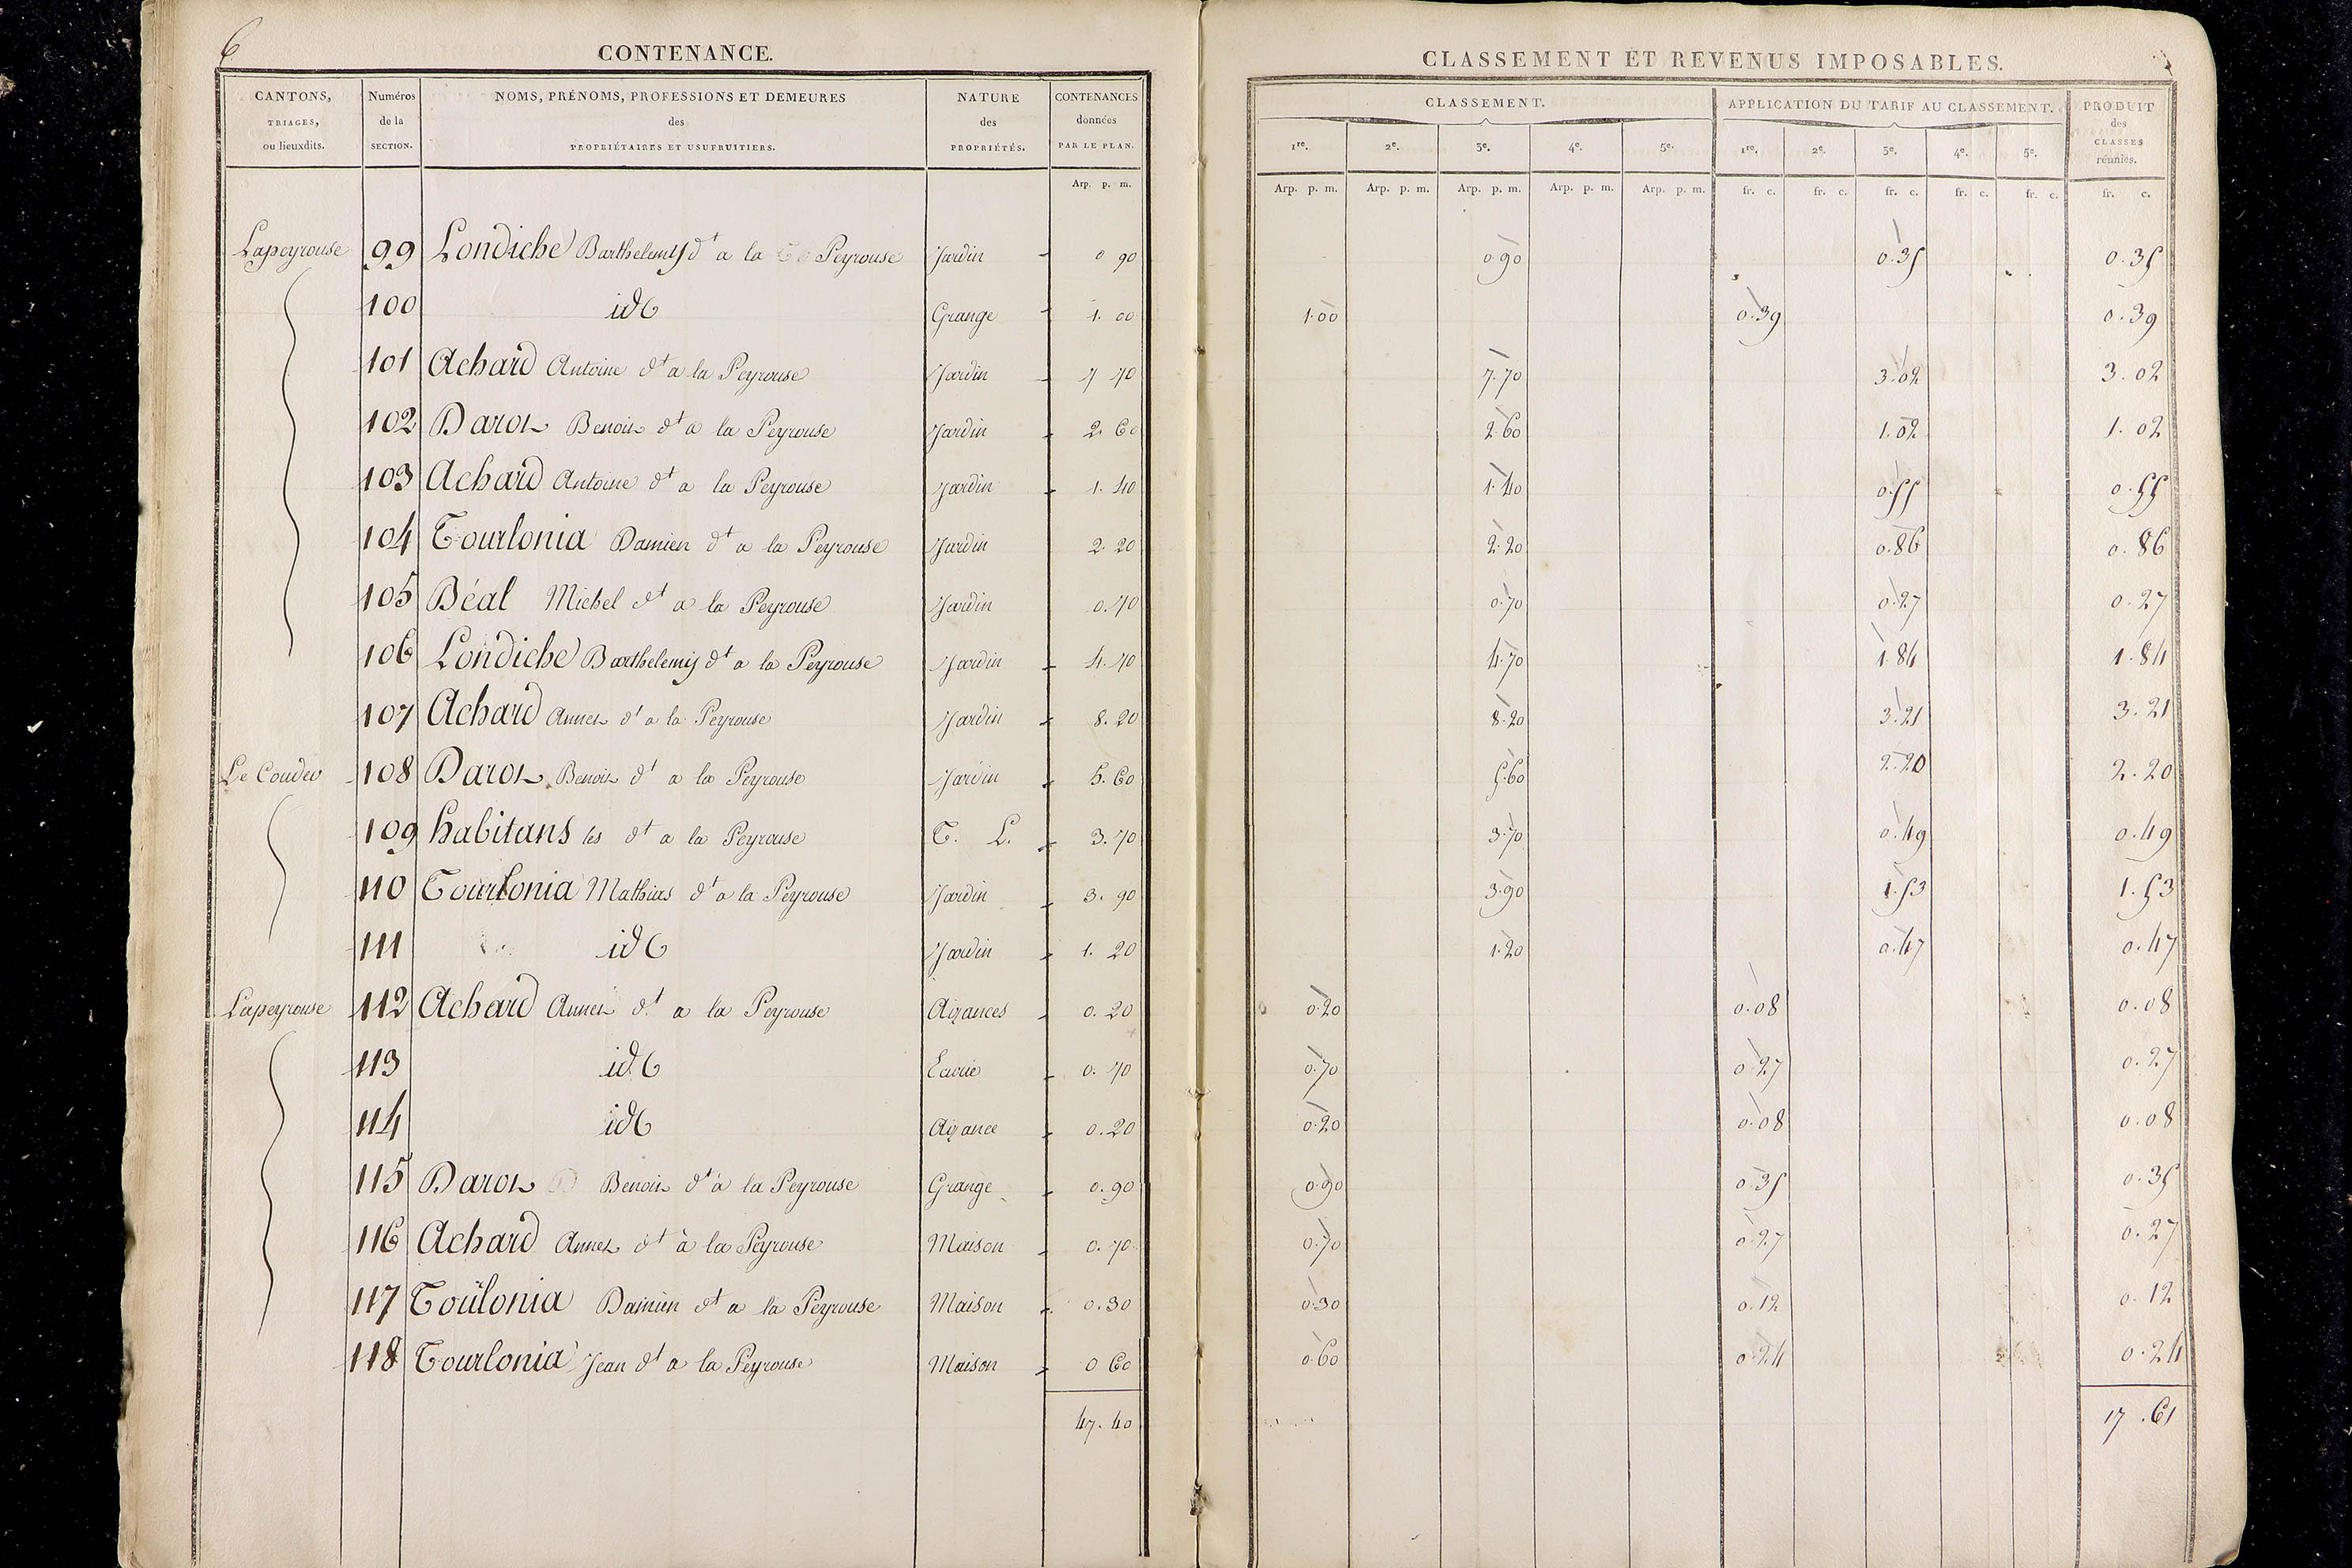 6
CONTENANCE.
CANTONS, TRIAGES, ou lieuxdits. | Numéros de la SECTION. | NOMS, PRÉNOMS, PROFESSIONS ET DEMEURES des PROPRIÉTAIRES ET USUFRUITIERS. | NATURE des PROPRIÉTÉS. | CONTENANCES données PAR LE PLAN.
Arp. p. m.
CLASSEMENT ET REVENUS IMPOSABLES.
CLASSEMENT. | APPLICATION DU TARIF AU CLASSEMENT. | PRODUIT des CLASSES réunies.
1re. 2e. 3e. 4e. 5e. | 1re. 2e. 3e. 4e. 5e.
Arp. p. m. Arp. p. m. Arp. p. m. Arp. p. m. Arp. p. m. | fr. c. fr. c. fr. c. fr. c. fr. c. | fr. c.
Lapeyrouse 99 Londiche Barthelemy dt a la Peyrouse Jardin 0 90 0.90 0.35 0.35
100 id Grange 1. 00 1.00 0.39 0.39
101 Achard Antoine dt a la Peyrouse Jardin 7 70 7.70 3.02 3.02
102 Darot Benoit dt a la Peyrouse Jardin 2. 60 2.60 1.02 1.02
103 Achard Antoine dt a la Peyrouse Jardin 1. 40 1.40 0.55 0.55
104 Tourlonia Damien dt a la Peyrouse Jardin 2. 20 2.20 0.86 0.86
105 Béal Michel dt a la Peyrouse Jardin 0.70 0.70 0.27 0.27
106 Londiche Barthelemy dt a la Peyrouse Jardin 4.70 4.70 1.84 1.84
107 Achard Annet dt a la Peyrouse Jardin 8.20 8.20 3.21 3.21
Le Couder 108 Darot Benoit dt a la Peyrouse Jardin 5.60 5.60 2.20 2.20
109 habitans les dt a la Peyrouse T. L. 3.70 3.70 0.49 0.49
110 Tourlonia Mathias dt a la Peyrouse Jardin 3. 90 3.90 1.53 1.53
111 id Jardin 1. 20 1.20 0.47 0.47
Lapeyrouse 112 Achard Annet dt a la Peyrouse Aizances 0. 20 0.20 0.08 0.08
113 id Ecurie 0. 70 0.70 0.27 0.27
114 id Aizance 0.20 0.20 0.08 0.08
115 Darot Benoit dt à la Peyrouse Grange 0.90 0.90 0.35 0.35
116 Achard Annet dt à la Peyrouse Maison 0.70 0.70 0.27 0.27
117 Toulonia Damien dt a la Peyrouse Maison 0.30 0.30 0.12 0.12
118 Tourlonia Jean dt a la Peyrouse Maison 0 60 0.60 0.24 0.24
47. 40 17.61